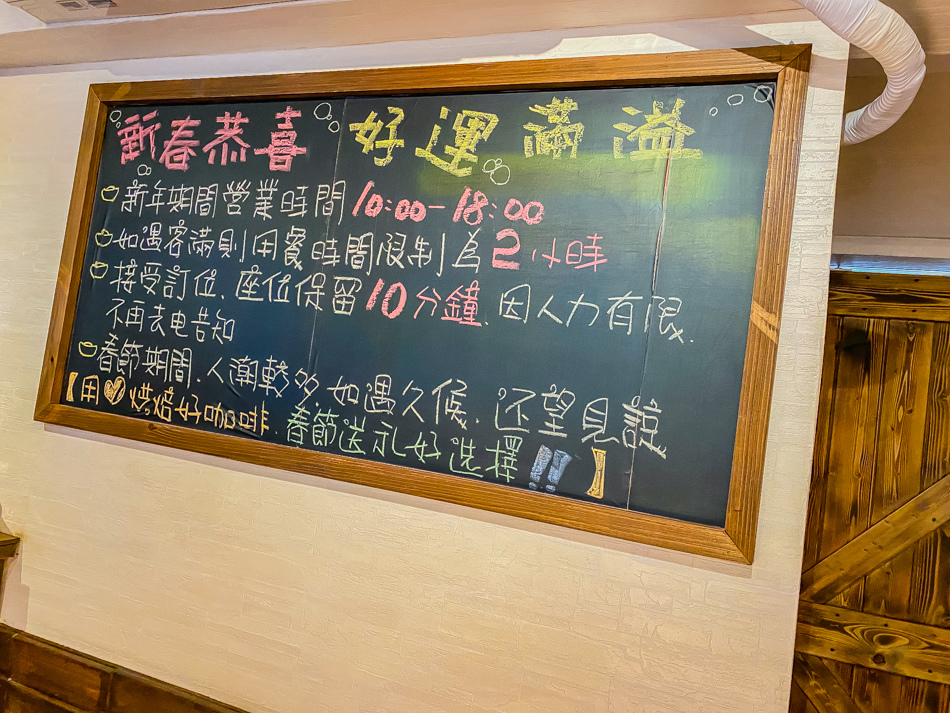 新春恭喜 好運滿溢
新年期間營業時間10:00-18:00
如遇客滿則用餐時間限制為2小時
接受訂位、座位保留10分鐘、因人力有限、
不再去电告知
春節期間、人潮較多、如遇久候、还望見諒
【用♡烘焙好咖啡、春節送礼好选擇!!】